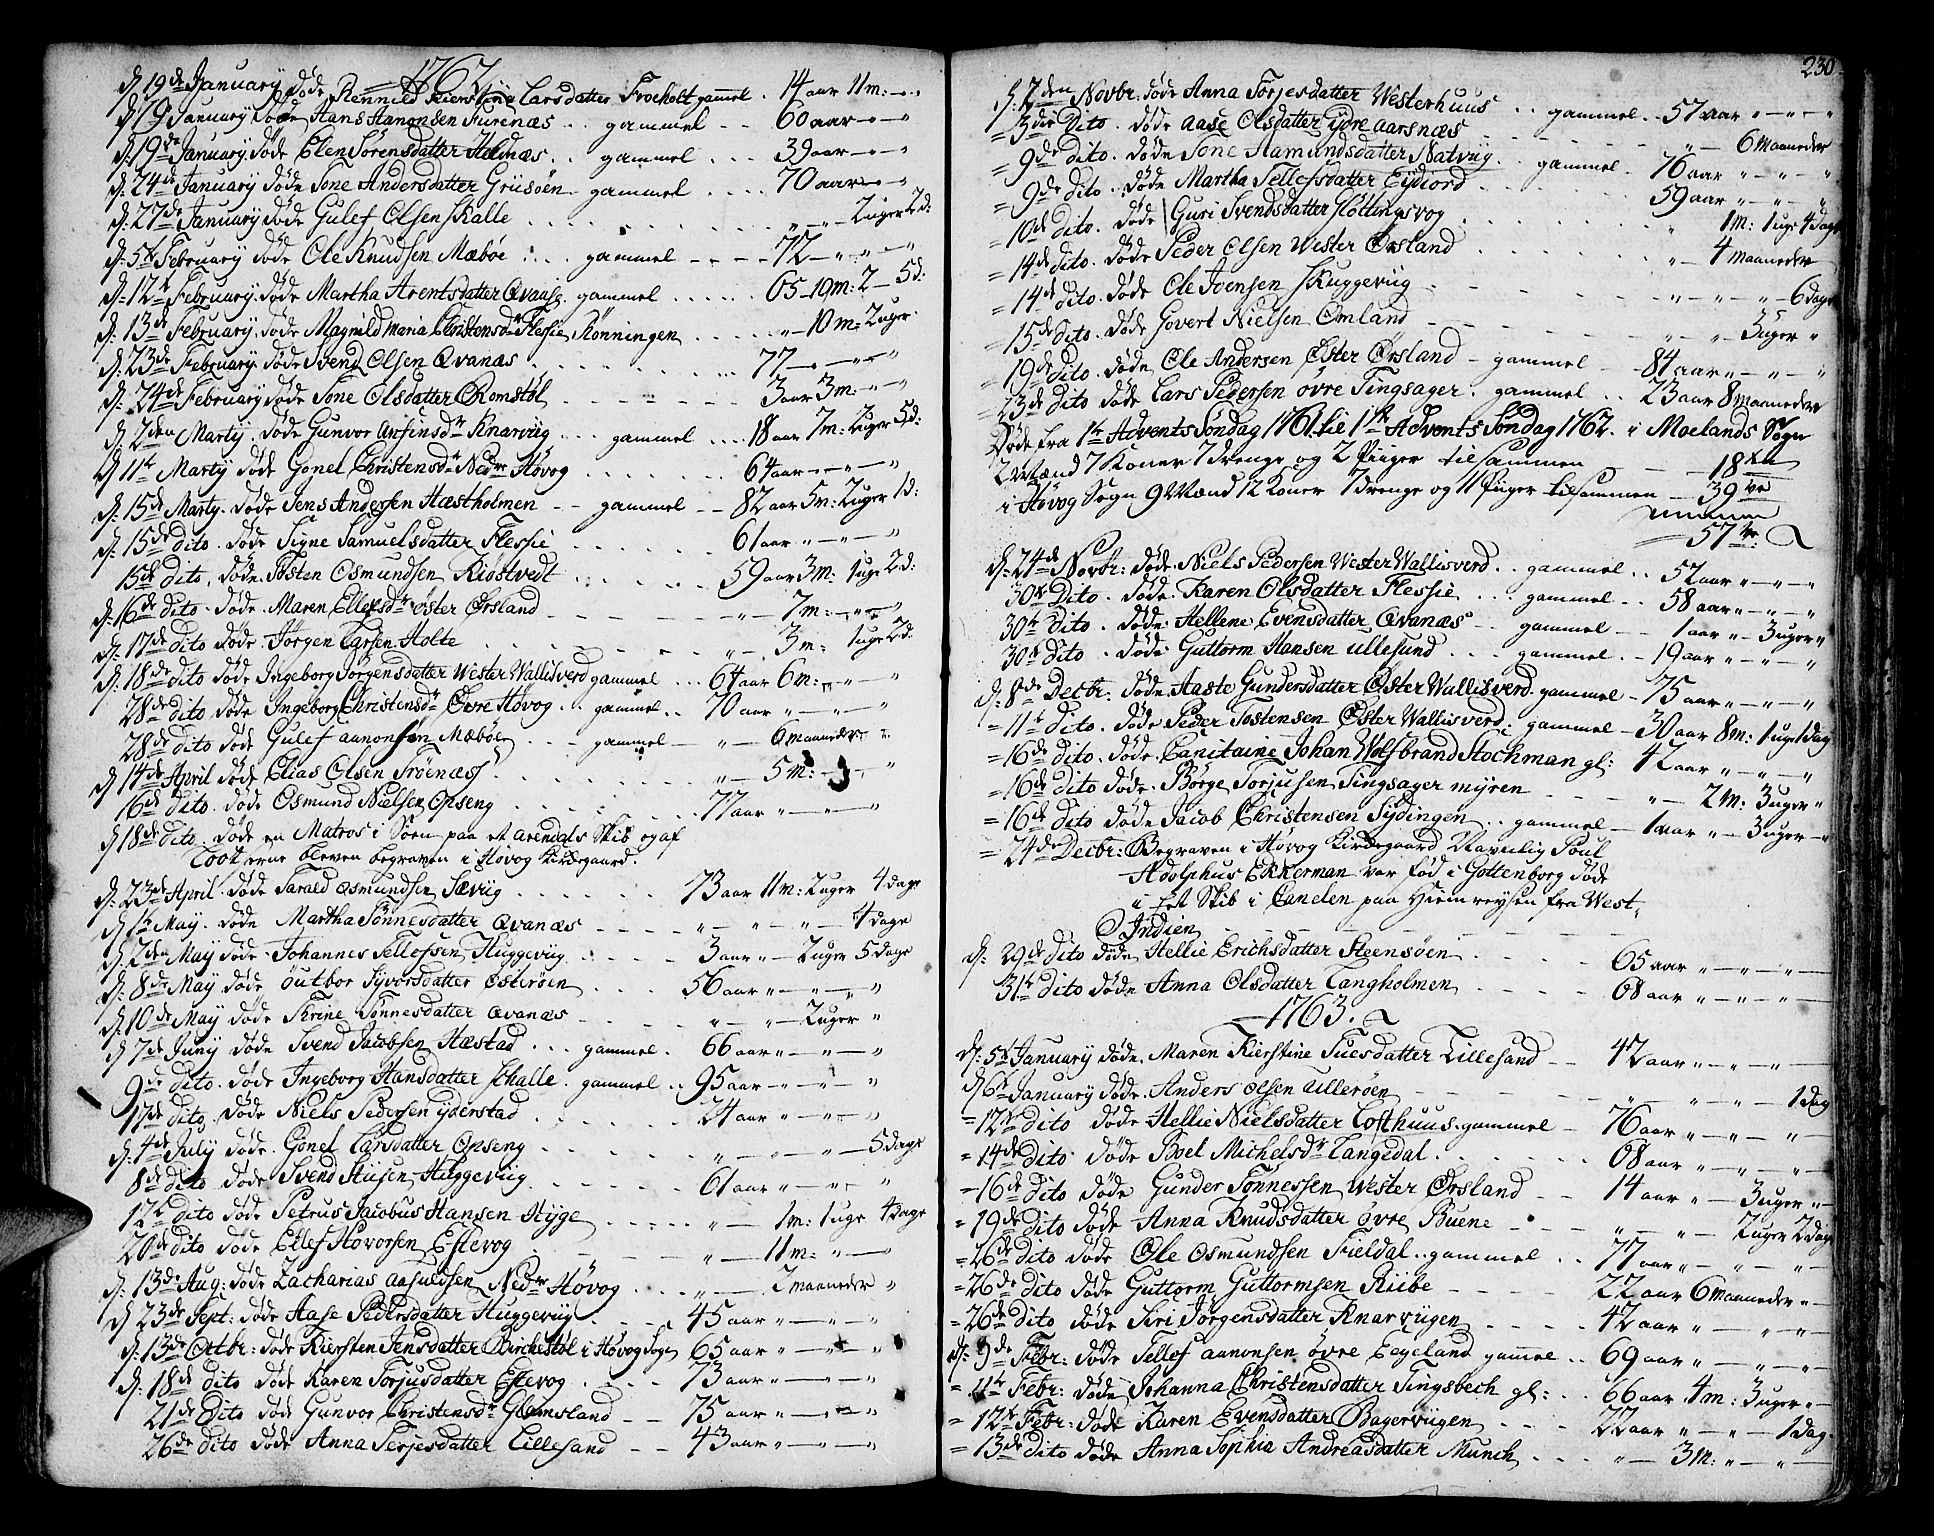 1762
d. 19de January døde Rennild Kierstine Larsdatter Frocholt gammel . 14 aar 11 m: – "
d. 19 January døde Hans Hansen Furenæs . . gammel . . 60 aar – " – "
d. 19de January døde Elen Sørensdatter . . gammel . . . 39 aar – " – "
d: 24de January døde Tone Andersdatter Griisøen – gammel . . . . 70 aar – " – "
d: 27de January døde Gulef Olsen Skalle . . . . . " – " – 2 uger 2 d:
d: 5te February døde Ole Knudsen Mæbøe . . . gammel – – – – 72 – " – " – "
d: 12te February døde Martha Arentsdatter Qvaase gammel . . . . . 65 – 10 m: 2 – 5 d:
d. 13de February døde Magnild Maria Christensdr Flessie i Rønningen . . . . . " – 10 m: 2 uger.
d: 23de February døde Svend Olsen Qvanæs . . . . . . . 77 – " – " – "
d: 24de February døde Tone Olsdatter Romstøl – – – – – – – 3 aar 3 m: – " – "
d: 2den Marty. døde Gunvor Arfinsdr Knarviig . . . gammel . . . . 18 aar 7 m: 2 uger 5 d:
d 11te Marty døde Gonel Christensdr Nedre Høvog . . . . . . 64 aar – " – " – "
d: 15de Marty. døde Jens Andersen Hæstholmen – – gammel – – 82 aar 5 m: 2 uger 1 d:
d: 15de dito. døde Signe Samuelsdatter Flessie . . . . . . 61 aar " – " – "
15de dito. døde Tosten Osmundsen Kiøstvedt . . . . . . 59 aar 3 m: 1 uge 2 d:
d: 16de dito. døde Maren Ellefsdr øster Ørsland – – – – – – – " – 7 m: – " – "
d. 17de dito døde Jørgen Larsen Holte . . . . . . " – 3 m: 1 uge 2 d.
d: 18de dito døde Ingeborg Jørgensdatter Wester Wallisverd gammel . . . 64 aar 6 m: – " – "
28de dito døde Ingeborg Christensdr Øvre Høvog . . gammel . . 70 aar " – " – "
28de dito døde Gulef Aanonsen Mæbøe . . – gammel – " – 6 maaneder "
d 14de April døde Elias Olsen Trøenæss . . . . . . " – 5 m: – " – "
16de dito. døde Osmund Nielsen Opseng . . . . . . . 77 aar " – " – "
d 18de dito døde en Matros i Søen paa et arendals Skib og af
erne bleven begraven i Høvog Kirkegaard.
d: 23de April. døde Tarald Osmundsen Sæviig . . . . . . 73 aar 11 m: 2 uger 4 dage
d 1te May. døde Martha Tønnesdatter Qvanæs – – – – " – " – " – 4 dage
d: 2den May døde Johannes Tellefsen Huggeviig . . . . . 3 aar " – 2 uger 5 dage
d: 8de May døde outbor Syvorsdatter Østerøen . . . . 56 aar " – " – "
d. 10de May døde Trine Tønnesdatter Qvanæs – . . . . . " – " – 2 uger "
d 7de Juny døde Svend Jacobsen Hæstad . . . gammel . 66 aar " – " – "
9de dito. døde Ingeborg Hansdatter Skalle . gammel . . 95 aar " – " – "
17de dito. døde Niels Pedersen yderstad . . . . . . 24 aar " – " – "
d. 4de July døde. Gonel Larsdatter Opseng . . . . . . " – " – " – 5 dage
8de dito døde Svend Huggeviig . . . . . . 61 aar " – " – "
17te dito døde Petrus Jacobus Hansen Hyge . . . . . . " – 1 m: 1 uge 4 dage
20de dito døde Ellef Hovorsen Estevog . . . . . . " – 11 m: " – "
d. 13de Aug: døde Zacharias Nedre Høvog . . . . " – 2 maaneder "
d 23de Sept: døde Aase Pedersdatter Huggeviig . . . . 45 aar " – " – "
d: 13de Octbr: døde Kiersten Jensdatter Birckestøl i Høvog Sogn 65 aar " – " – "
d. 18de dito døde Karen Torjusdatter Estevog . . . . 73 aar – " – "
21de dito døde Gunvor Christensdr Glamsland – – 75 aar – " – "
26de dito døde Anna Terjesdatter Lillesand – – 43 aar – " – "
230
d: 2den Novbr. døde Anna Torjesdatter Westerhuus . . gammel . . 57 aar " – " – "
= 3die Dito. døde Aase Olsdatter ydre Aarsnæs – – – – – – " – 6 Maaneder
= 9de dito. døde Tone Aamundsdatter Natviig . . gammel . 76 aar " – " – "
= 9de dito. døde Martha Tellefsdatter Eydiord . . . . . 59 aar " – " – "
= 10de dito. døde Guri Svendsdatter Høttingsvog . . . . . " 1 m: 1 uge 4 dage
= 14de dito. døde Peder Olsen Wester Ørsland . . . . . " – 4 maaneder
= 14de dito. døde Ole Ivensen Skuggeviig . . . . . " – " – " – 6 dage
= 15de dito. døde Govert Nielsen Omland – – – – – " – " – 3 uger "
= 19de dito. døde Ole Andersen Øster Ørsland – gammel – – 84 aar " – " – "
= 23de dito døde Lars Pedersen øvre Tingsager . gammel . . 23 aar 8 maaneder
Døde fra 1te Advents Søndag 1761 til 1te Advents Søndag 1762. i Moelands Sogn
2 Mænd 7 Koner 7 drenge og 2 Piiger tilsammen – – – 18ten
i Høvog Sogn 9 Mænd 12 Koner 7 drenge og 11 Piiger tilsammen – 39ve
57ve
d: 24de Novbr: døde Niels Pedersen Wester Wallisverd . . gammel . . 52 aar " – " – "
30te Dito. døde Karen Olsdatter Flessie . . . gammel . . 58 aar " – " – "
30te dito. døde Hellene Evensdatter Qvanæs – – gammel . . 1 aar " – 3 uger "
30te dito. døde Guttorm Hansen Ullesund . . . gammel . – 19 aar " – " – "
d. 8de Decbr. døde Aaste Gundersdatter Øster Wallisverd. gammel – 75 aar " – " – "
= 11te dito. døde Peder Tostensen Øster Wallisverd . gammel – 30 aar 8 m: 1 uge 1 dag
= 16de dito. døde Capitaine Johan Wolfbrand Stockman gl: 42 aar " – " – "
= 16de dito døde Børge Torjusen Tingsager myren – – – " – 2 m: 3 uger "
= 16de dito døde Jacob Christensen Sydingen . . gammel – 1 aar " – 3 uger – "
= 24de Decbr: Begraven i Høvog Kirkegaard Navnlig Poul
Adolphus Ekkerman var fød i Gottenborg døde
i Let Skib i Canelen paa Hiemreysen fra West-
Indien – – – – – – – –
d: 29de dito døde Hellie Erichsdatter Steensøen . . . . 65 aar " – " – "
31te dito døde Anna Olsdatter Langholmen – – – – – 68 aar " – " – "
1763.
d: 5te January døde. Maren Kierstine Tuesdatter Lillesand – – 42 aar " – " – "
d 6te January døde. Anders Olsen Ullerøen – – – – – " – " – " – 1 dag
= 12te dito døde Hellie Nielsdatter Lofthuus . gammel – 76 aar " – " – "
= 14de dito døde Boel Michelsdr Langedal . . . . . . 68 aar " – " – "
= 16de dito døde Gunder Tønnessen Wester Ørsland – – 14 aar " – 3 uger " –
= 19de dito døde Anna Knudsdatter øvre Buene – – – – " – " – 2 uger 2 dage
= 26de dito døde Ole Osmundsen Fieldal . . gammel . . 77 aar " – " – "
= 26de dito døde Guttorm Guttormsen Riibe – – – – – 22 aar 6 maaneder " –
= 26de dito døde Siri Jørgensdatter Knarviigen – – – – 42 aar " – " – "
d: 9de Febr: døde Tellef Aanonsen øvre Eegeland gamel . . 69 aar " – " – "
= 11te Febr: døde Johanna Christensdatter Tingsbech gl: . . 66 aar 4 m: 3 uger "
= 12te Febr: døde Karen Evensdatter Bagerviigen . . . . 22 aar " – " – 1 dag
= 13de dito døde Anna Sophia Andreasdatter Munch . . . . " – 3 m: " – "